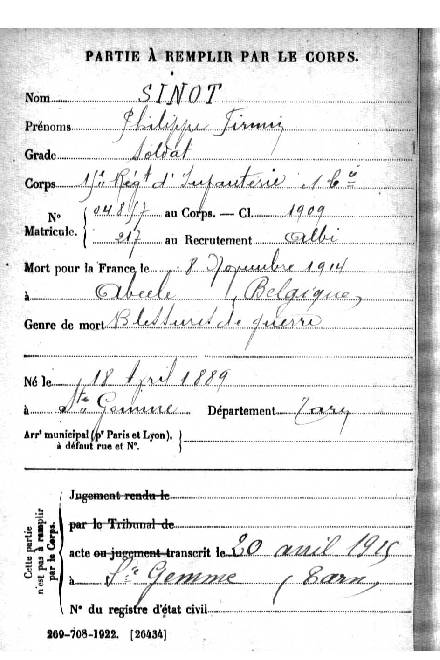 PARTIE À REMPLIR PAR LE CORPS.
Nom SINOT
Prénoms Philippe Firmin
Grade Soldat
Corps 15e Régt d'Infanterie
N° Matricule. { 04857 au Corps. — Cl. 1909
217 au Recrutement Albi
Mort pour la France le 8 Novembre 1914
à Abeele (Belgique)
Genre de mort Blessures de guerre
Né le 18 April 1889
à Ste Gemme Département Tarn
Arrt municipal (pr Paris et Lyon),
à défaut rue et N°.
Cette partie n'est pas à remplir par le Corps.
Jugement rendu le
par le Tribunal de
acte ou jugement transcrit le 20 avril 1915
à Ste Gemme (Tarn)
N° du registre d'état civil
269-708-1922. [26434]